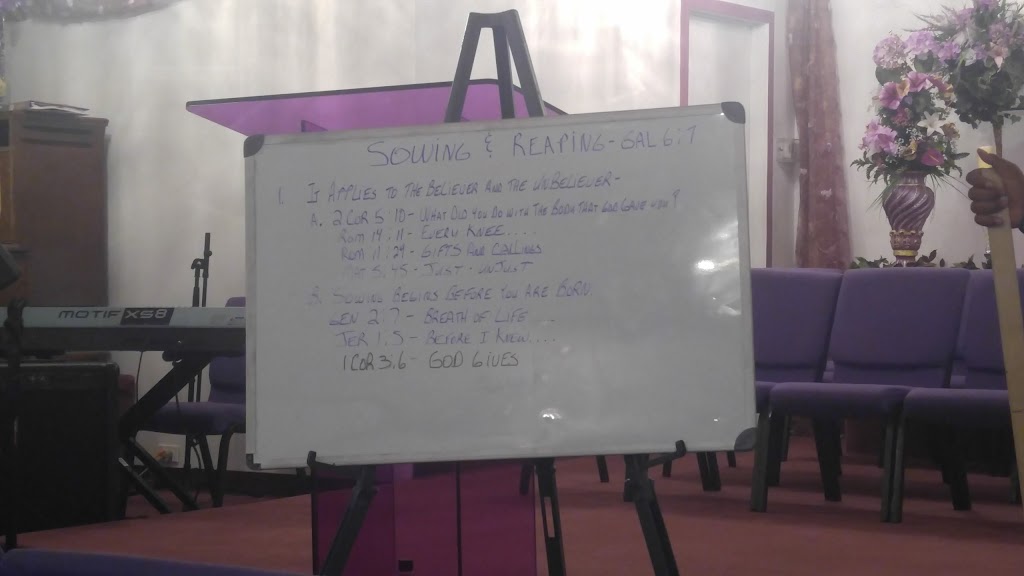 SOWING & REAPING - GAL 6:7
1. IT APPLIES TO THE BELIEVER AND THE UNBELIEVER -
A. 2 COR 5:10 - WHAT DID YOU DO WITH THE BODY THAT GOD GAVE YOU?
ROM 14:11 - EVERY KNEE....
ROM 11:29 - GIFTS AND CALLINGS
MAT 5:45 - JUST - UNJUST
B. SOWING BEGINS BEFORE YOU ARE BORN.
GEN 2:7 - BREATH OF LIFE...
JER 1:5 - BEFORE I KNEW....
1 COR 3:6 - GOD GIVES
MOTIF XS8